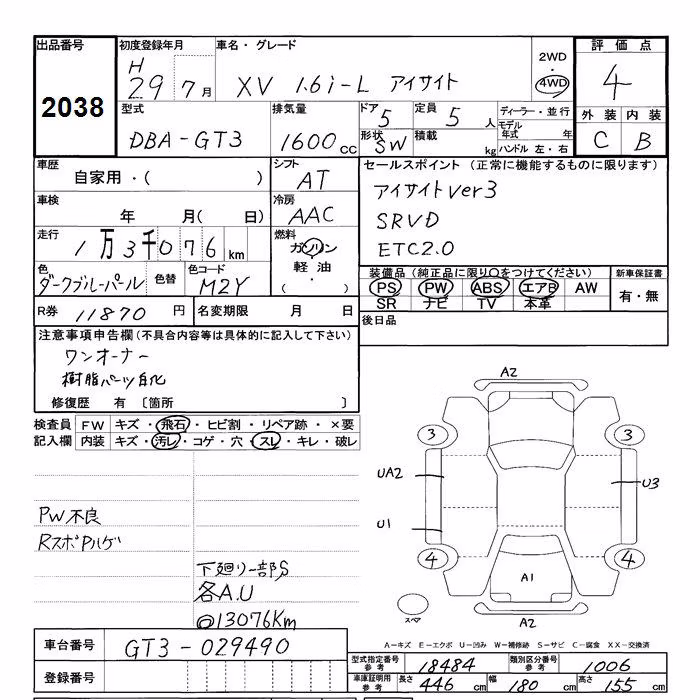 出品番号
2038
初度登録年月
H
29 7月
車名・グレード
XV 1.6i-L アイサイト
2WD
・
4WD
評価点
4
外装 内装
C B
型式
DBA-GT3
排気量
1600cc
ドア 5
定員 5人
形状 SW
積載 kg
ディーラー・並行
モデル年式 年
ハンドル 左・右
車歴
自家用・( )
シフト
AT
セールスポイント (正常に機能するものに限ります)
アイサイトver3
SRVD
ETC2.0
車検
年 月( 日)
冷房
AAC
走行
1万3千076km
燃料
ガソリン
・
軽油
・
( )
色
ダークブルーパール
色替
色コード
M2Y
装備品 (純正品に限り○をつけてください)
PS PW ABS エアB AW
SR ナビ TV 本革
新車保証書
有・無
R券 11870円
名変期限 月 日
後日品
注意事項申告欄(不具合内容等は具体的に記入して下さい)
ワンオーナー
樹脂パーツ白化
修復歴 有 〔箇所 〕
検査員記入欄
FW キズ・飛石・ヒビ割・リペア跡・×要
内装 キズ・汚レ・コゲ・穴・スレ・キレ・破レ
PW不良
RスポPハゲ
下廻り一部S
各A.U
@13076Km
A2
3 3
UA2
U3
U1
4 4
A1
スペア
A2
A-キズ E-エクボ U-凹み W-補修跡 S-サビ C-腐食 XX-交換済
車台番号 GT3-029490
登録番号
型式指定番号参考 18484
類別区分番号参考 1006
車庫証明用参考 長さ 446cm 幅 180cm 高さ 155cm